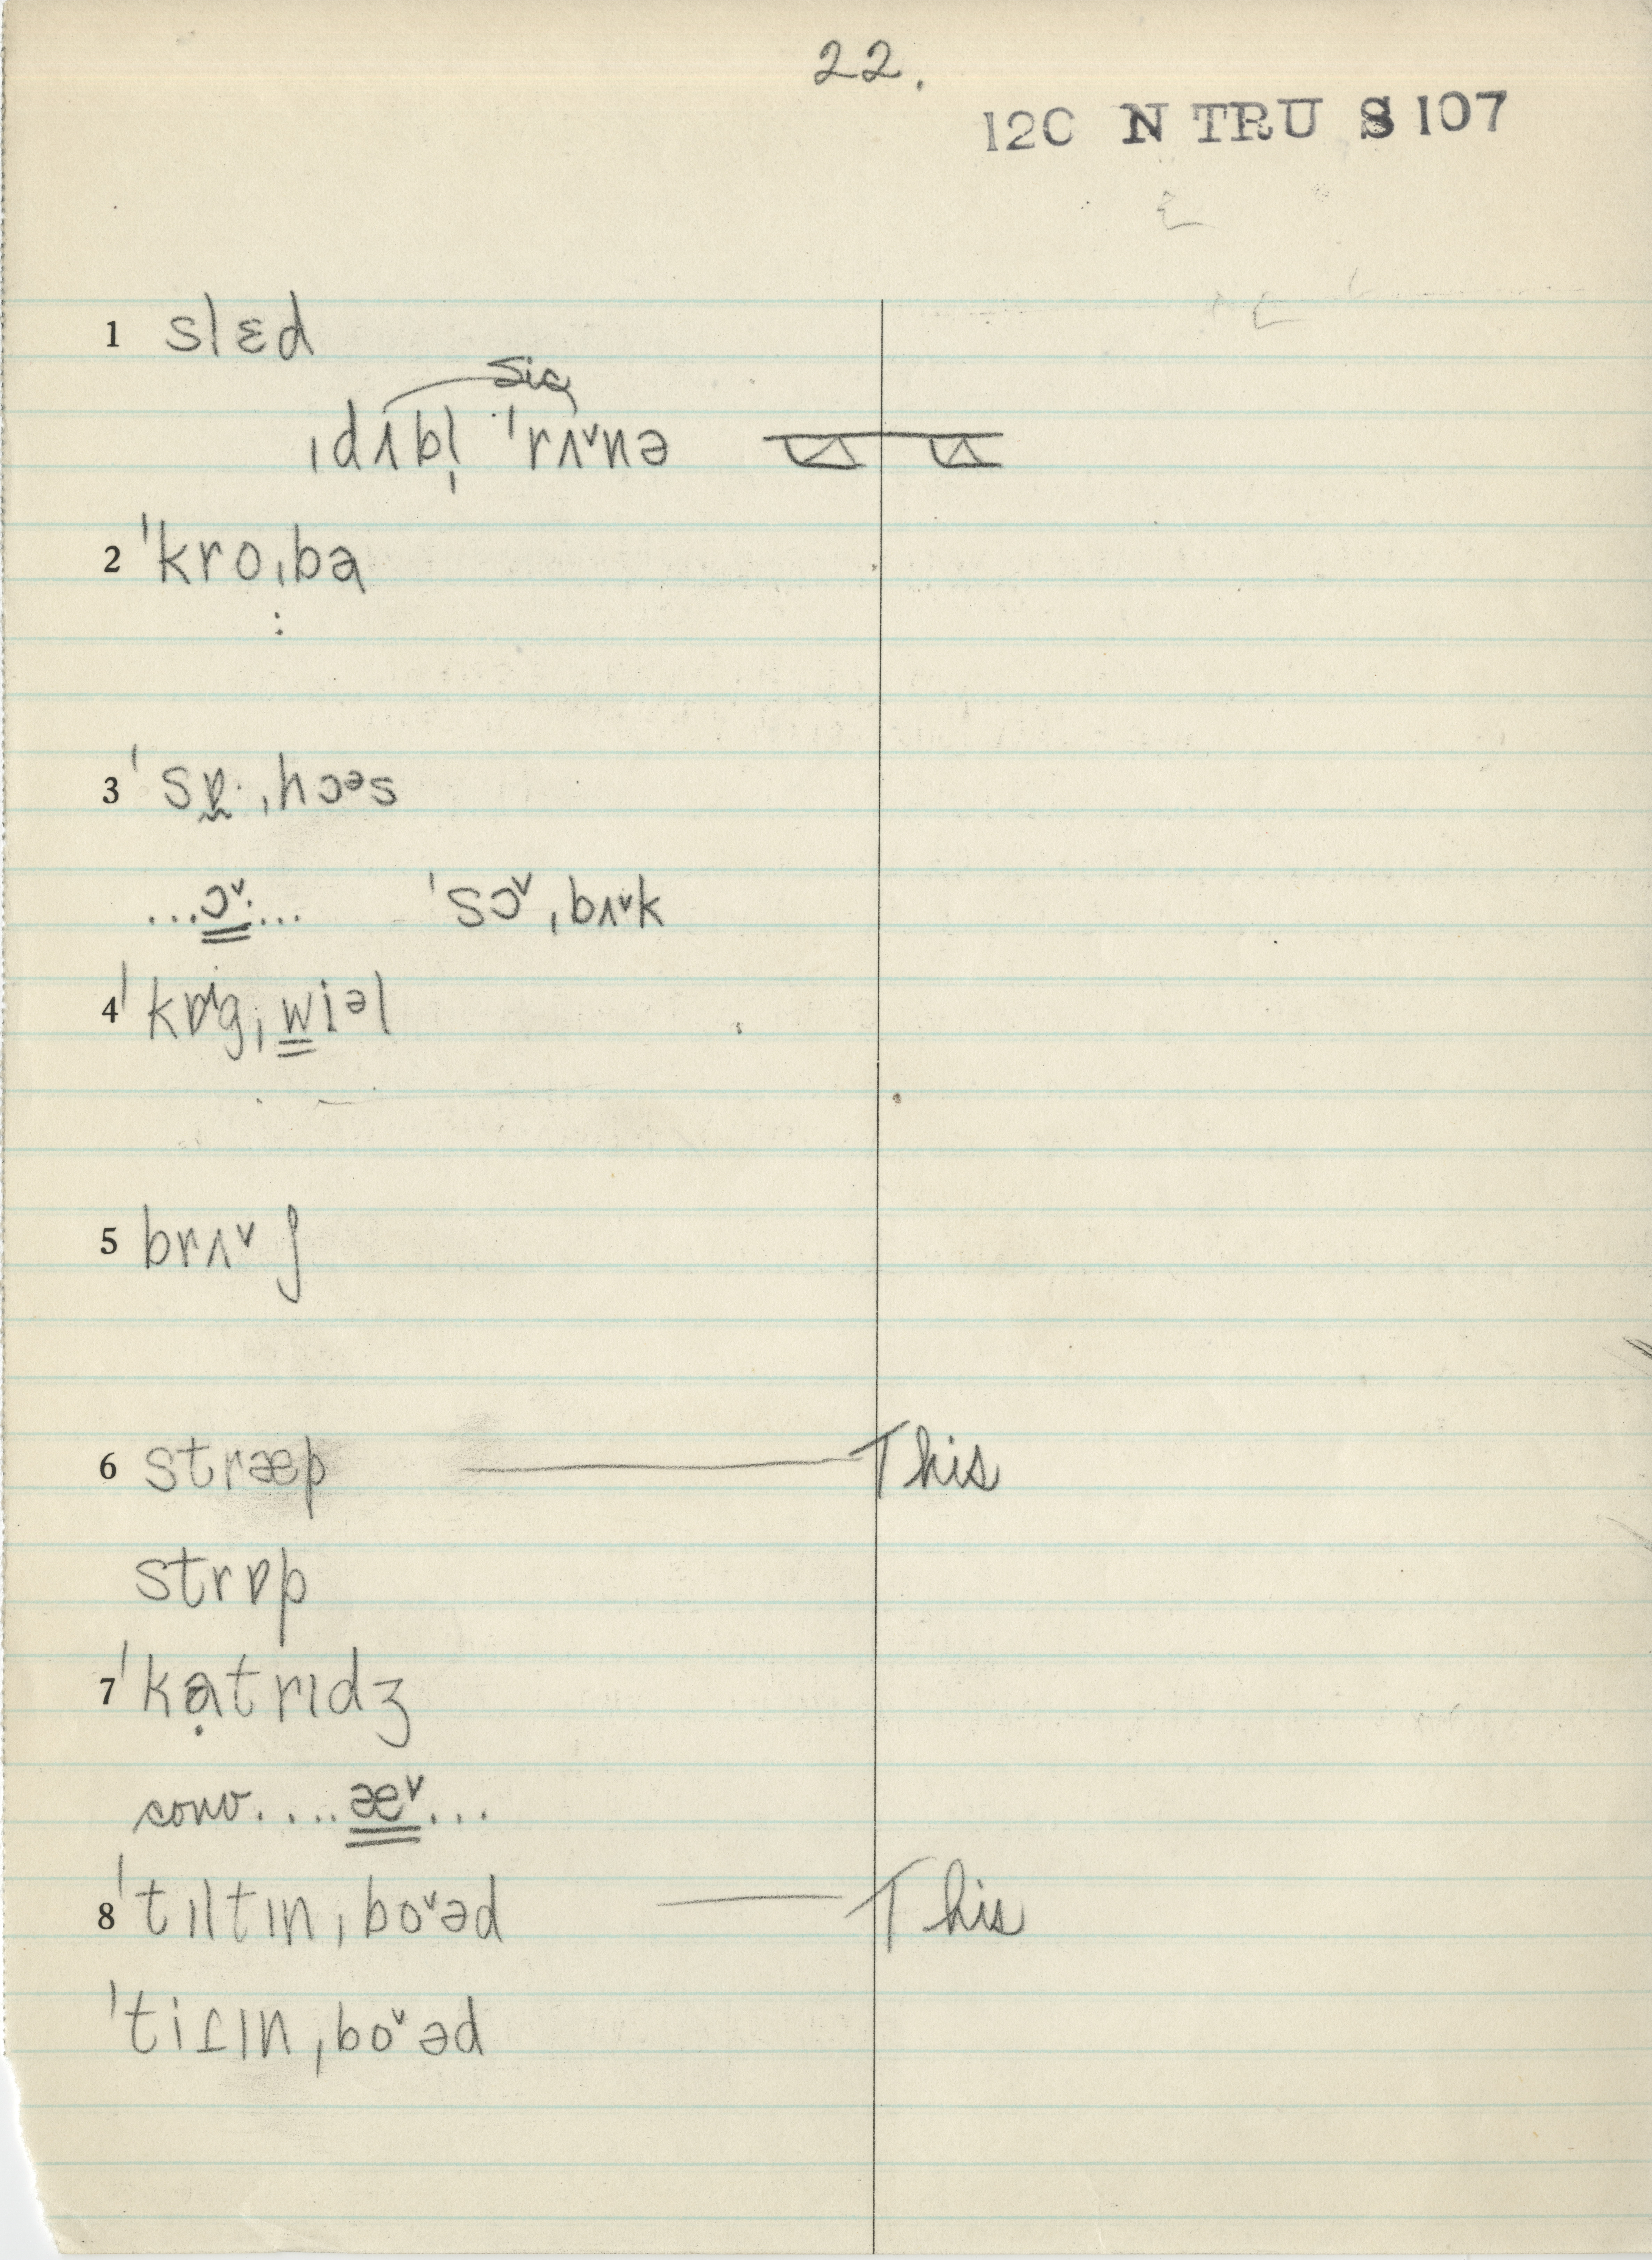 22.
120 N TRU S 107
1 slɛd
sic
ˌdʌbl̩ ˈrʌ˅nə
2 ˈkroˌba
3 ˈsɒ̰· ˌhɔᵊs
...ɔ˅·... ˈsɔ˅ˌbʌ˅k
4 ˈkɒgˌwiᵊl
5 brʌ˅ʃ
6 stræp — This
strɒp
7 ˈkạtrɪdʒ
conv....æ˅...
8 ˈtɪltɪnˌbo˅əd — This
ˈtiɾɪnˌbo˅əd